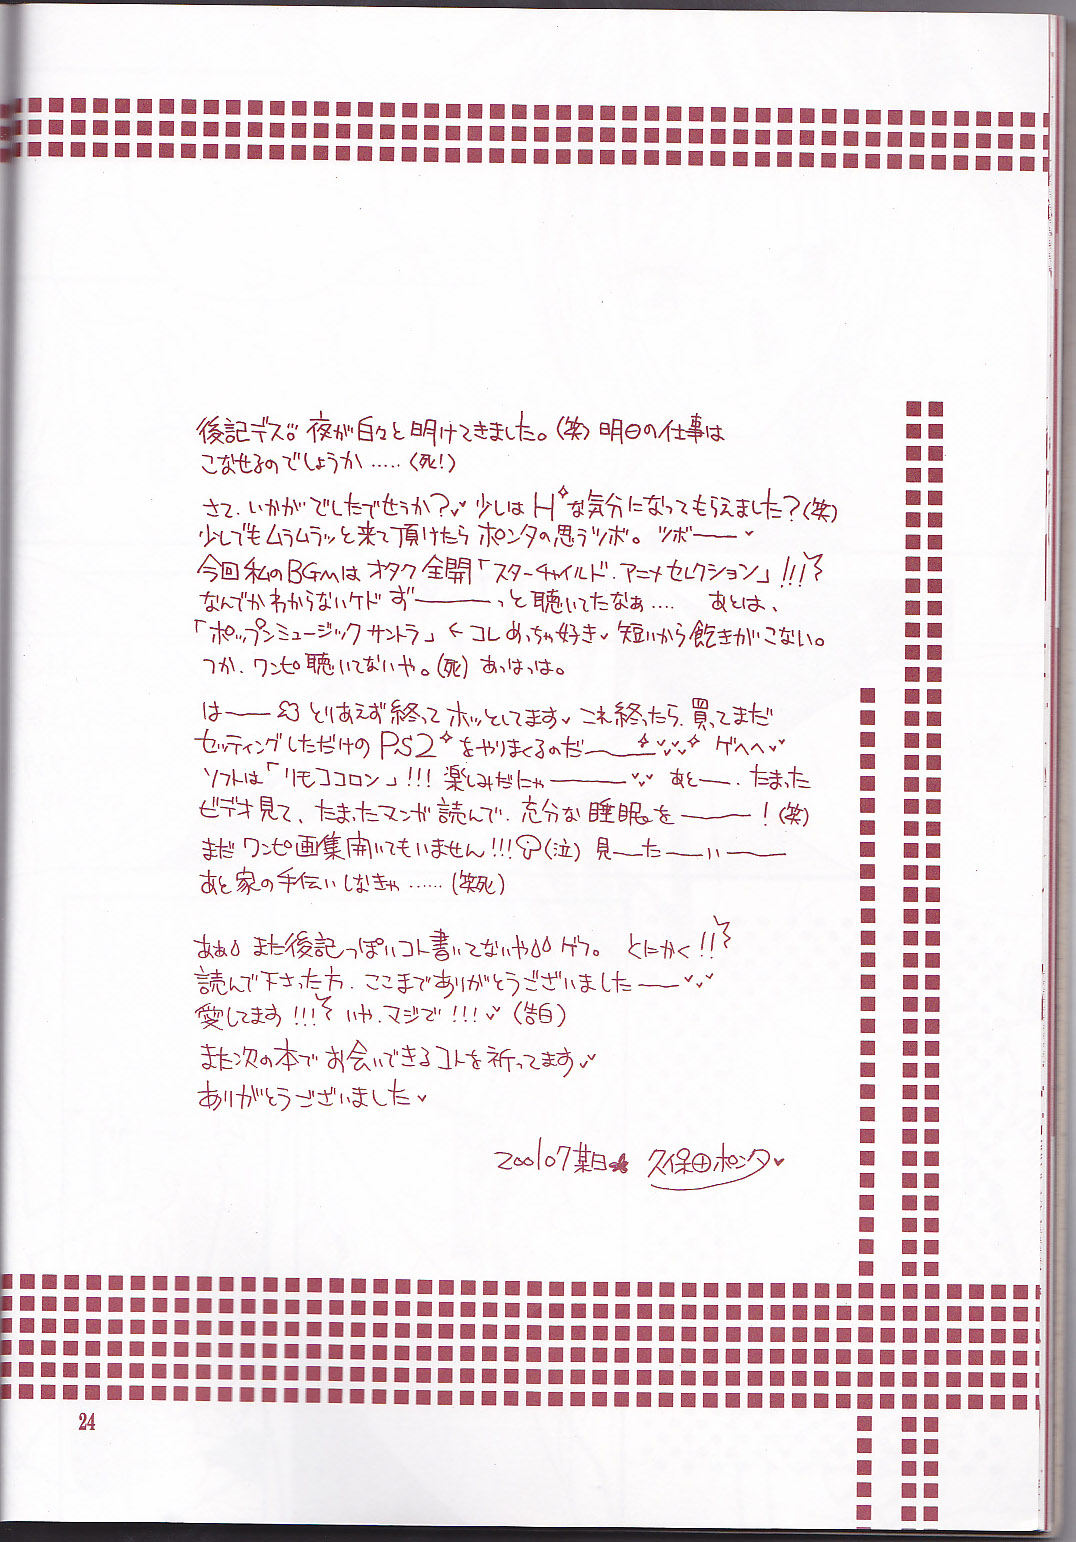 後記デス。夜が白々と明けてきました。(笑)明日の仕事は
こなせるのでしょうか‥‥‥(死!)
さて、いかがでしたでせうか?♥少しはHな気分になってもらえました?(笑)
少しでもムラムラッと来て頂けたらポンタの思うツボ。ツボ――♥
今回私のBGMはオタク全開「スターチャイルド・アニメセレクション」!!!
なんでかわからないケドず―――っと聴いてたなぁ‥‥ あとは、
「ポップンミュージックサントラ」←コレめっちゃ好き♥短いから飽きがこない。
つか、ワンピ聴いてないや。(死)あっはっは。
は――とりあえず終ってホッとしてます♥これ終ったら、買ってまだ
セッティングしただけのPS2をやりまくるのだ――♥♥ ゲヘヘ♥♥
ソフトは「リモココロン」!!!楽しみだにゃ―――♥♥ あと―、たまった
ビデオ見て、たまったマンガ読んで、充分な睡眠を―――!(笑)
まだワンピ画集開いてもいません!!!(泣)見―た―い――
あと家の手伝いしなきゃ‥‥‥(笑死)
あぁまた後記っぽいコト書いてないやゲフ。 とにかく!!
読んで下さった方、ここまでありがとうございました――♥♥
愛してます!!!いや、マジで!!!♥(告白)
また次の本でお会いできるコトを祈ってます♥
ありがとうございました♥
200107某日★ 久保田ポンタ♥
24